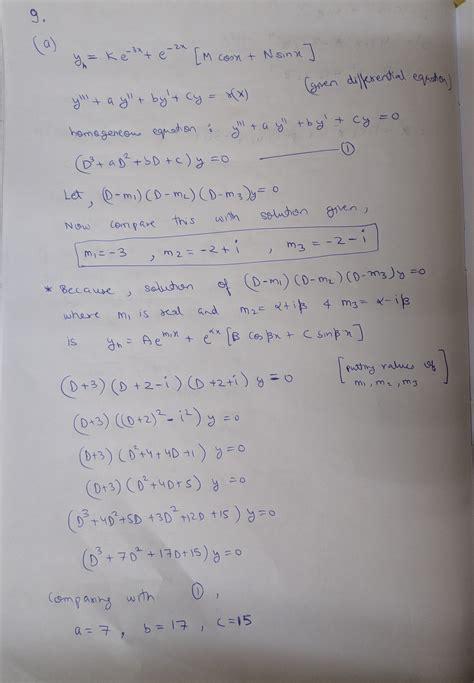 9.
(a) yₕ = K e^{-3x} + e^{-2x} [M cosx + N sinx]
y''' + a y'' + by' + cy = r(x) (given differential equation)
homogeneous equation : y''' + a y'' + by' + cy = 0
(D³ + aD² + bD + c) y = 0 ——— ①
Let, (D-m₁) (D-m₂) (D-m₃)y = 0
Now compare this with solution given,
m₁ = -3 , m₂ = -2 + i , m₃ = -2 - i
* Because, solution of (D-m₁) (D-m₂) (D-m₃)y = 0
where m₁ is real and m₂ = α+iβ & m₃ = α-iβ
is yₕ = A e^{m₁x} + e^{αx} [B cosβx + C sinβx]
(D+3) (D+2-i) (D+2+i) y = 0 [putting values of m₁, m₂, m₃]
(D+3) ((D+2)² - i²) y = 0
(D+3) (D²+4+4D+1) y = 0
(D+3) (D²+4D+5) y = 0
(D³+4D²+5D+3D²+12D+15) y = 0
(D³+7D²+17D+15) y = 0
Comparing with ①,
a = 7, b = 17, c = 15